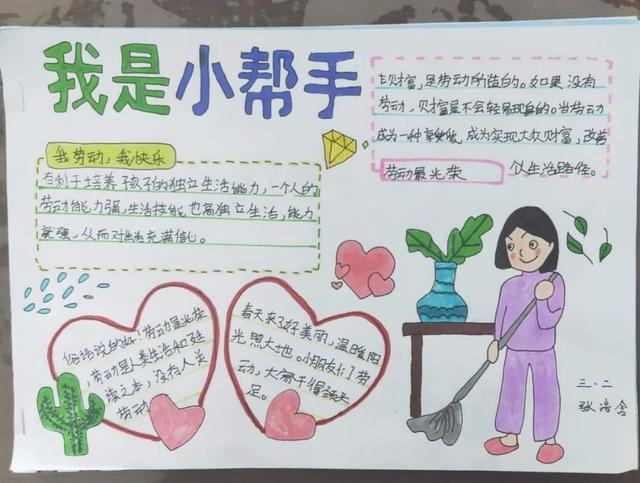 我是小帮手
我劳动,我快乐
有利于培养孩子的独立生活能力,一个人的
劳动能力强,生活技能也高独立生活,能力
就强,从而对生活充满信心。
财富,是劳动所造的。如果没有
劳动,财富是不会轻易现身的。当劳动
成为一种技能,成为实现大众财富,改善
劳动最光荣
生活路径。
俗话说的好:劳动是光荣
,劳动是人类生活和
之本,没有人类
劳动
春天来了好美丽,温暖阳
光照大地。小朋友们劳
动,
足。
三.二